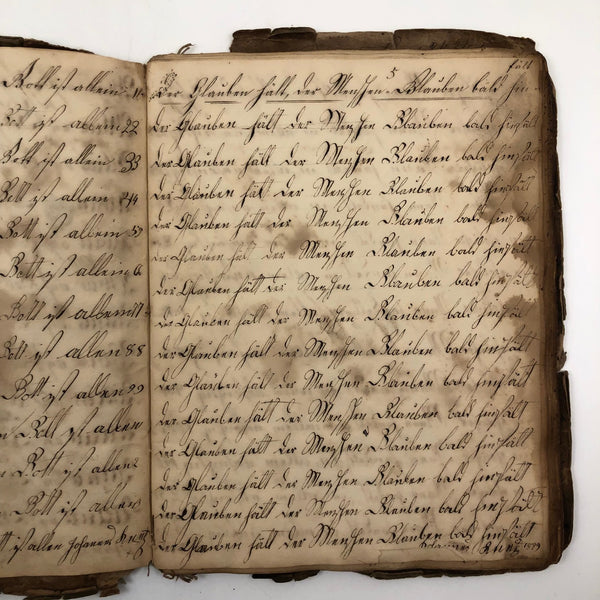 Gott ist allein 11
Gott ist allein 22
Gott ist allein 33
Gott ist allein 44
Gott ist allein 55
Gott ist allein 6
Gott ist allein
Gott ist allen 88
Gott ist allen 99
Gott ist allen
Gott ist allen
Gott ist allen
Gott ist allen Johannes
5
fält
Der Glauben hält, der Menschen Glauben bald hin-
der Glauben hält der Menschen Glauben bald hinfält
der Glauben hält der Menschen Glauben bald hinfält
der Glauben hält der Menschen Glauben bald hinfält
der Glauben hält der Menschen Glauben bald hinfält
der Glauben hält der Menschen Glauben bald hinfält
der Glauben hält der Menschen Glauben bald hinfält
der Glauben hält der Menschen Glauben bald hinfält
der Glauben hält der Menschen Glauben bald hinfält
der Glauben hält der Menschen Glauben bald hinfält
der Glauben hält der Menschen Glauben bald hinfält
der Glauben hält der Menschen Glauben bald hinfält
der Glauben hält der Menschen Glauben bald hinfält
der Glauben hält der Menschen Glauben bald hinfält
der Glauben hält der Menschen Glauben bald hinfält
Johannes